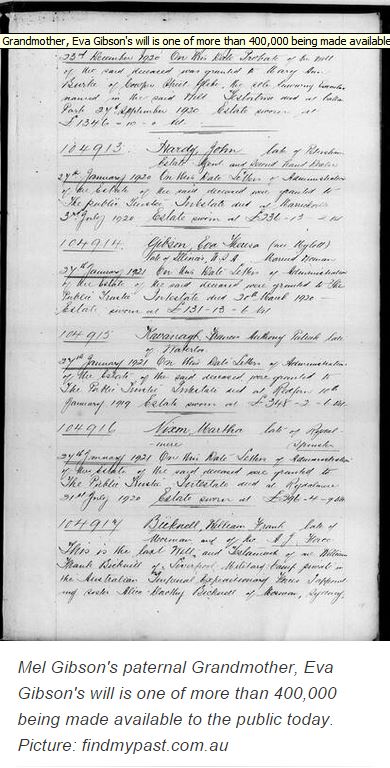 Grandmother, Eva Gibson's will is one of more than 400,000 being made available
23rd December 1920 On this Date Probate of the Will
of the said deceased was granted to Mary Ann
Burke of Street Glebe, the sole
named in the said Will Testatrix died at
Park 27th September 1920 Estate sworn at
£1346
104913 Hardy, John late of
Estate Agent and Second Hand Dealer
27th January 1920 On this Date Letters of Administration
of the Estate of the said deceased were granted to
The Public Trustee Intestate died at Marrickville
3rd July 1920 Estate sworn at £236-13
104914 Gibson, Eva
late of Illinois, U.S.A. Married Woman
27th January 1921 On this Date Letters of Administration
of the Estate of the said deceased were granted to The
Public Trustee Intestate died 20th March 1920
Estate sworn at £131-13-6
104915 Kavanagh, Francis Anthony Patrick late
of Waterloo
27th January 1921 On this Date Letters of Administration
of the Estate of the said deceased were granted to
The Public Trustee Intestate died at Redfern 10th
January 1919 Estate sworn at £348-2-1
104916 Nixon, Martha late of Rydal
mere Spinster
27th January 1921 On this Date Letters of Administration
of the Estate of the said deceased were granted to
The Public Trustee Intestate died at Rydalmere
21st July 1920 Estate sworn at £296-4-9
104917 Bicknell, William Frank late of
Mosman and of the A.I. Force
This is the last Will and Testament of me William
Frank Bicknell of Liverpool Military Camp private in
the Australian Imperial Expeditionary Forces I appoint
my sister Alice Dorothy Bicknell of Mosman, Sydney,
Mel Gibson's paternal Grandmother, Eva
Gibson's will is one of more than 400,000
being made available to the public today.
Picture: findmypast.com.au